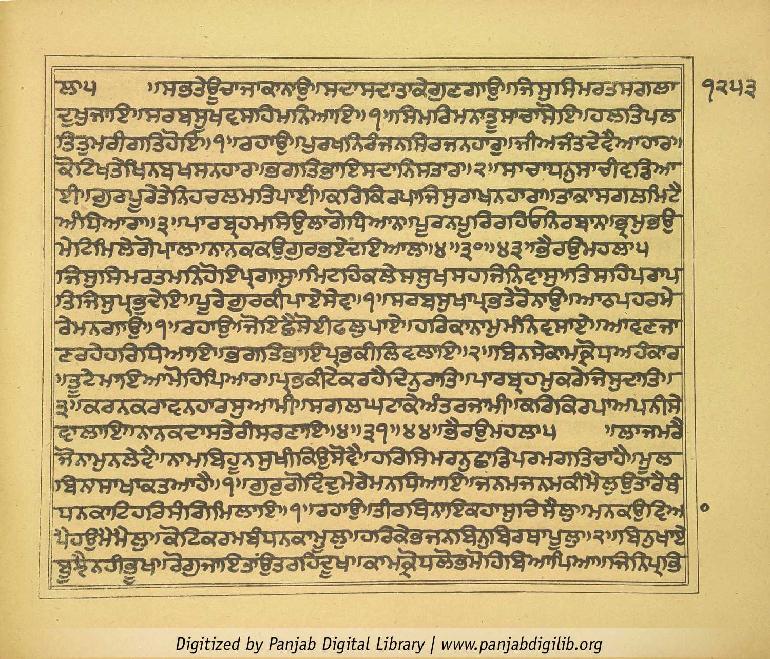 ਲਾ੫ ॥ਸਭਤੇਊਚਾਜਾਕਾਨਾਉ॥ਸਦਾਸਦਾਤਾਕੇਗੁਣਗਾਉ॥ਜਿਸੁਸਿਮਰਤਸਗਲਾ
੧੨੫੩
ਦੁਖੁਜਾਇ॥ਸਰਬਸੂਖਵਸਹਿਮਨਿਆਇ॥੧॥ਸਿਮਰਿਮਨਾਤੂਸਾਚਾਸੋਇ॥ਹਲਤਿਪਲ
ਤਿਤੁਮਰੀਗਤਿਹੋਇ॥੧॥ਰਹਾਉ॥ਪੁਰਖਨਿਰੰਜਨਸਿਰਜਨਹਾਰ॥ਜੀਅਜੰਤਦੇਵੈਆਹਾਰ॥
ਕੋਟਿਖਤੇਖਿਨਬਖਸਨਹਾਰ॥ਭਗਤਿਭਾਇਸਦਾਨਿਸਤਾਰ॥੨॥ਸਾਚਾਧਨੁਸਾਚੀਵਡਿਆ
ਈ॥ਗੁਰਪੂਰੇਤੇਨਿਹਚਲਮਤਿਪਾਈ॥ਕਰਿਕਿਰਪਾਜਿਸੁਰਾਖਨਹਾਰਾ॥ਤਾਕਾਸਗਲਮਿਟੈ
ਅੰਧਿਆਰਾ॥੩॥ਪਾਰਬ੍ਰਹਮਸਿਉਲਾਗੋਧਿਆਨ॥ਪੂਰਨਪੂਰਿਰਹਿਓਨਿਰਬਾਨ॥ਭ੍ਰਮਭਉ
ਮੇਟਿਮਿਲੇਗੋਪਾਲ॥ਨਾਨਕਕਉਗੁਰਭਏਦਇਆਲ॥੪॥੩੦॥੪੩॥ਭੈਰਉਮਹਲਾ੫
ਜਿਸੁਸਿਮਰਤਮਨਿਹੋਇਪ੍ਰਗਾਸੁ॥ਮਿਟਹਿਕਲੇਸਸੁਖਸਹਜਿਨਿਵਾਸੁ॥ਤਿਸਹਿਪਰਾਪ
ਤਿਜਿਸੁਪ੍ਰਭੁਦੇਇ॥ਪੂਰੇਗੁਰਕੀਪਾਏਸੇਵ॥੧॥ਸਰਬਸੁਖਾਪ੍ਰਭਤੇਰੋਨਾਉ॥ਆਠਪਹਰਮੇ
ਰੇਮਨਗਾਉ॥੧॥ਰਹਾਉ॥ਜੋਇਛੈਸੋਈਫਲੁਪਾਏ॥ਹਰਿਕਾਨਾਮੁਮੰਨਿਵਸਾਏ॥ਆਵਣਜਾ
ਣਰਹੇਹਰਿਧਿਆਇ॥ਭਗਤਿਭਾਇਪ੍ਰਭਕੀਲਿਵਲਾਇ॥੨॥ਬਿਨਸੇਕਾਮਕ੍ਰੋਧਅਹੰਕਾਰ
॥ਤੂਟੇਮਾਇਆਮੋਹਪਿਆਰ॥ਪ੍ਰਭਕੀਟੇਕਰਹੈਦਿਨੁਰਾਤਿ॥ਪਾਰਬ੍ਰਹਮੁਕਰੇਜਿਸੁਦਾਤਿ॥
੩॥ਕਰਨਕਰਾਵਨਹਾਰਸੁਆਮੀ॥ਸਗਲਘਟਾਕੇਅੰਤਰਜਾਮੀ॥ਕਰਿਕਿਰਪਾਅਪਨੀਸੇ
ਵਾਲਾਇ॥ਨਾਨਕਦਾਸਤੇਰੀਸਰਣਾਇ॥੪॥੩੧॥੪੪॥ਭੈਰਉਮਹਲਾ੫ ॥ਲਾਜਮਰੈ
ਜੋਨਾਮੁਨਲੇਵੈ॥ਨਾਮਬਿਹੂਨਸੁਖੀਕਿਉਸੋਵੈ॥ਹਰਿਸਿਮਰਨੁਛਾਡਿਪਰਮਗਤਿਚਾਹੈ॥ਮੂਲ
ਬਿਨਾਸਾਖਾਕਤਆਹੈ॥੧॥ਗੁਰੁਗੋਵਿੰਦੁਮੇਰੇਮਨਧਿਆਇ॥ਜਨਮਜਨਮਕੀਮੈਲੁਉਤਾਰੈਬੰ
ਧਨਕਾਟਿਹਰਿਸੰਗਿਮਿਲਾਇ॥੧॥ਰਹਾਉ॥ਤੀਰਥਿਨਾਇਕਹਾਸੁਚਿਸੈਲੁ॥ਮਨਕਉਵਿਆ
ਪੈਹਉਮੈਮੈਲੁ॥ਕੋਟਿਕਰਮਬੰਧਨਕਾਮੂਲੁ॥ਹਰਿਕੇਭਜਨਬਿਨੁਬਿਰਥਾਪੂਲੁ॥੨॥ਬਿਨੁਖਾਏ
ਬੂਝੈਨਹੀਭੂਖ॥ਰੋਗੁਜਾਇਤਾਂਉਤਰਹਿਦੂਖ॥ਕਾਮਕ੍ਰੋਧਲੋਭਮੋਹਿਬਿਆਪਿਆ॥ਜਿਨਿਪ੍ਰਭਿ
Digitized by Panjab Digital Library | www.panjabdigilib.org